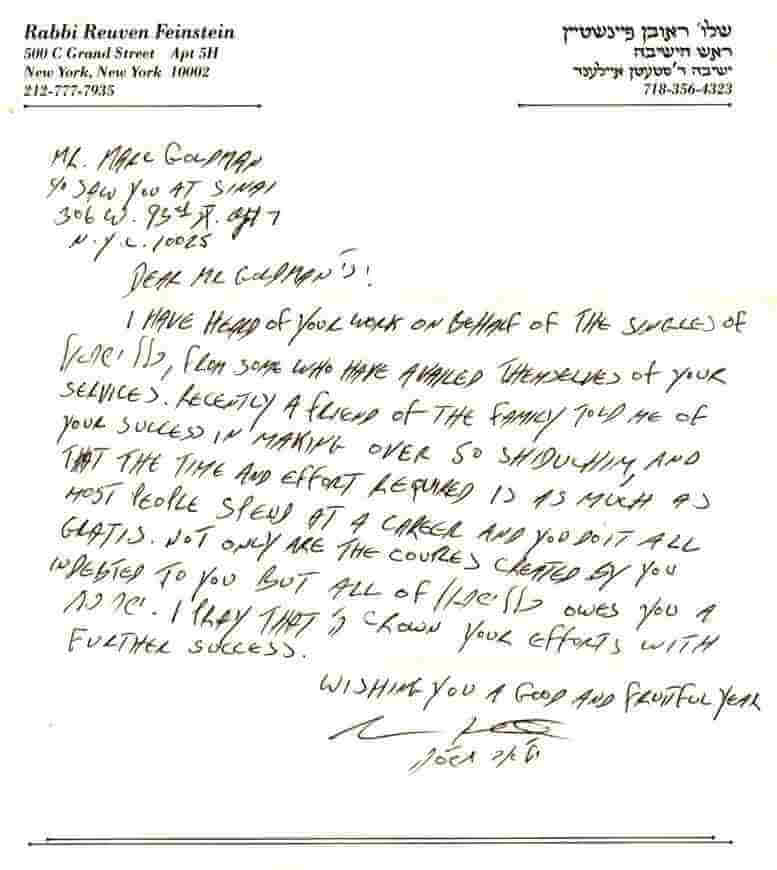 Rabbi Reuven Feinstein
500 C Grand Street Apt 5H
New York, New York 10002
212-777-7935
שלו' ראובן פיינשטיין
ראש הישיבה
ישיבה ד'סטעטן איילענד
718-356-4323
MR. MARC GOLDMAN
c/o SAW YOU AT SINAI
306 W. 93rd ST. apt 7
N.Y.C. 10025
DEAR MR GOLDMAN
I HAVE HEARD of YOUR WORK ON BEHALF OF THE SINGLES of
כלל ישראל, FROM SOME WHO HAVE AVAILED THEMSELVES of YOUR
SERVICES. RECENTLY A FRIEND OF THE FAMILY TOLD ME OF
YOUR SUCCESS IN MAKING OVER 50 SHIDUCHIM, AND
THAT THE TIME AND EFFORT REQUIRED IS AS MUCH AS
MOST PEOPLE SPEND AT A CAREER AND YOU DO IT ALL
GRATIS. NOT ONLY ARE THE COUPLES CREATED BY YOU
INDEBTED TO YOU BUT ALL OF כלל ישראל OWES YOU A
. I PRAY THAT ה' CROWN YOUR EFFORTS WITH
FURTHER SUCCESS.
WISHING YOU A GOOD AND FRUITFUL YEAR